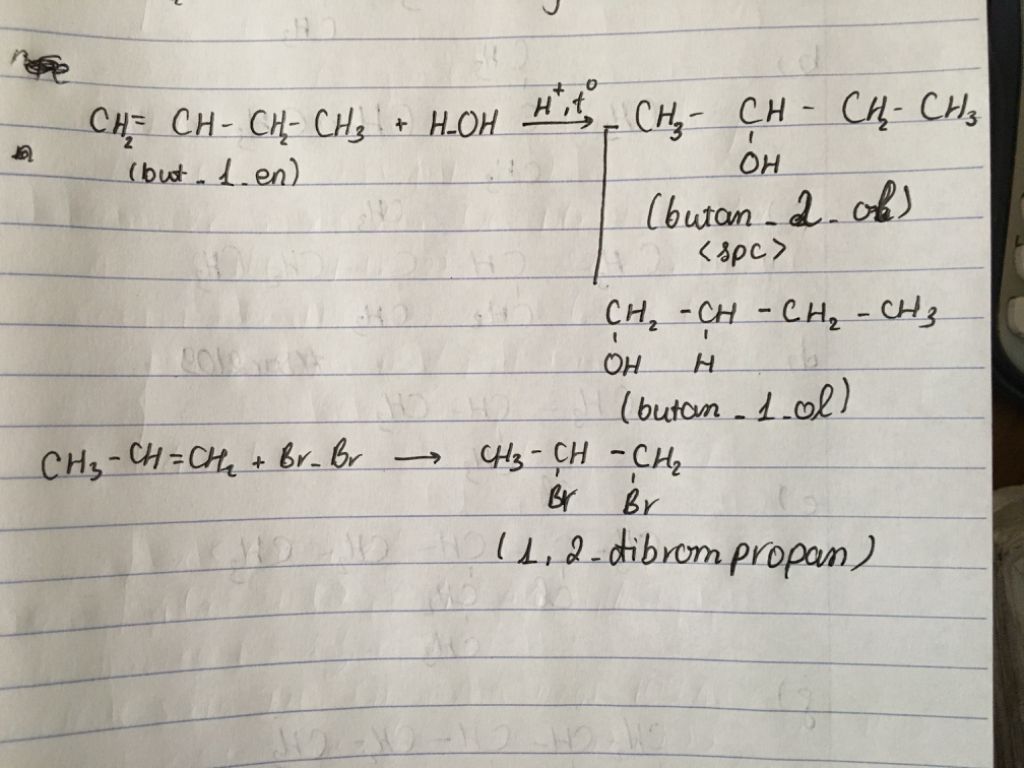 CH₂= CH- CH₂- CH₃ + H-OH H⁺, t⁰ → CH₃- CH - CH₂- CH₃
OH
(but - 1 - en)
(butan - 2 - ol)
<spc>
CH₂ - CH - CH₂ - CH₃
OH H
(butan - 1 - ol)
CH₃ - CH = CH₂ + Br - Br → CH₃ - CH - CH₂
Br Br
(1, 2 - dibrom propan)